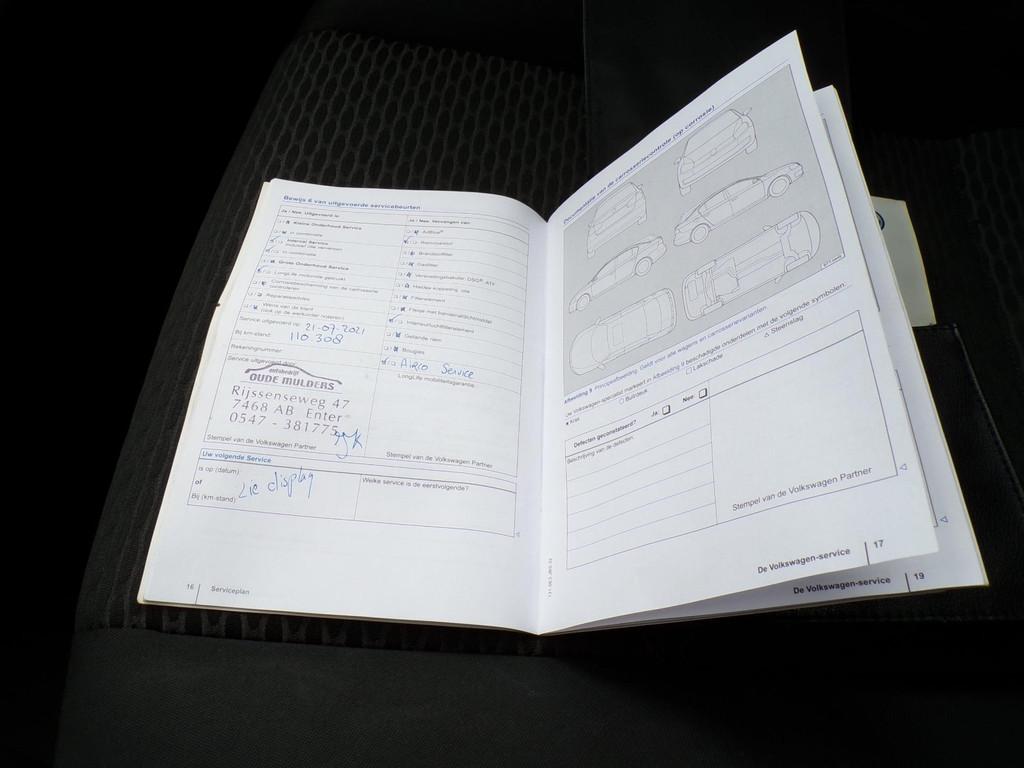 Bewijs 6 van uitgevoerde servicebeurten
Ja / Nee, Uitgevoerd is:
Kleine Onderhoud Service
In combinatie
Interval Service
In combinatie
Grote Onderhoud Service
LongLife motorolie gebruikt
Corrosiebescherming van de carrosserie
controleren
Reparatieadvies
Wens van de klant
Service uitgevoerd op: 21-07-2021
Bij km-stand: 110.308
Rekeningnummer:
Service uitgevoerd door:
autobedrijf
OUDE MULDERS
Rijssenseweg 47
7468 AB Enter
0547 - 381775
Stempel van de Volkswagen Partner
Ja / Nee, Vervangen van:
AdBlue®
Brandstoffilter
Gasfilter
Filterelement
Interieurluchtfilterelement
Getande riem
Bougies
Airco Service
LongLife mobiliteitsgarantie
Stempel van de Volkswagen Partner
Uw volgende Service
is op (datum):
of
Bij (km-stand):
zie display
Welke service is de eerstvolgende?
16 Serviceplan
Documentatie van de carrosseriecontrole (op corrosie)
Afbeelding 9 Principeafbeelding: Geldt voor alle wagens en carrosserievarianten
Uw Volkswagen-specialist markeert in Afbeelding 9 beschadigde onderdelen met de volgende symbolen:
Kras
Buil/deuk
Lakschade
Steenslag
Defecten geconstateerd? Ja: Nee:
Beschrijving van de defecten:
Stempel van de Volkswagen Partner
De Volkswagen-service 17
De Volkswagen-service 19